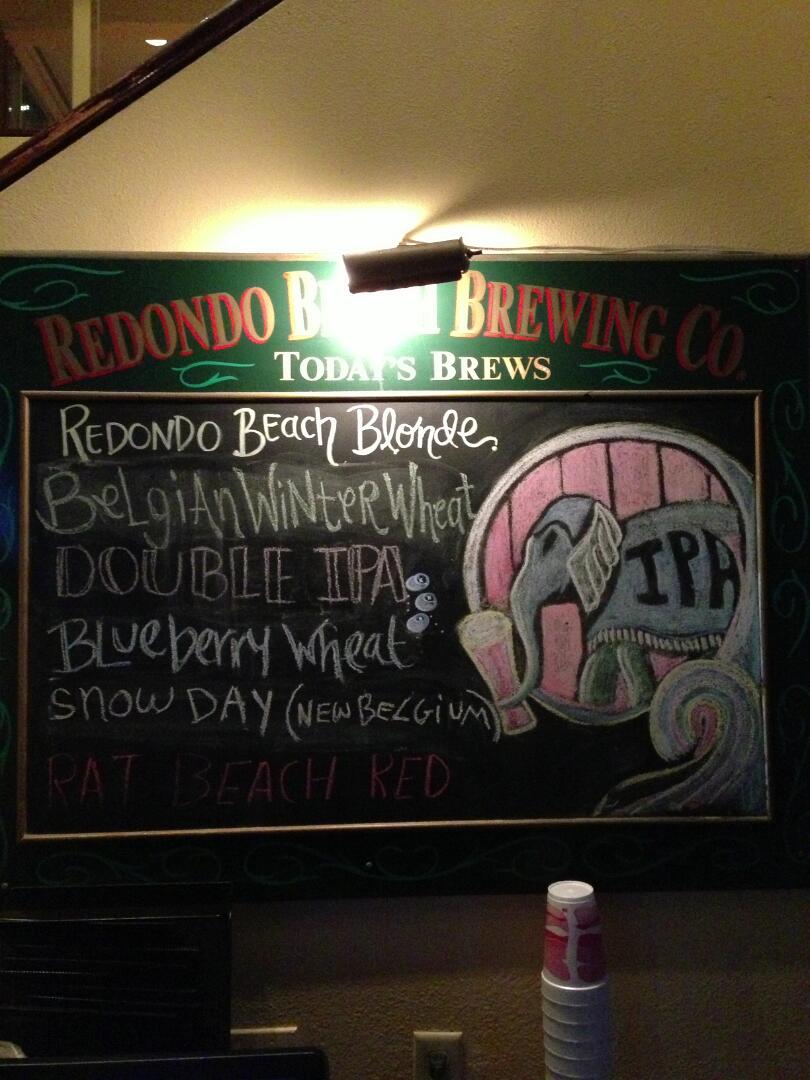 REDONDO BEACH BREWING CO.
TODAY'S BREWS
REDONDO BEACH BLONDE.
BELGIAN WINTER WHEAT
DOUBLE IPA
BLUEBERRY WHEAT
SNOW DAY (NEW BELGIUM)
RAT BEACH RED
IPA